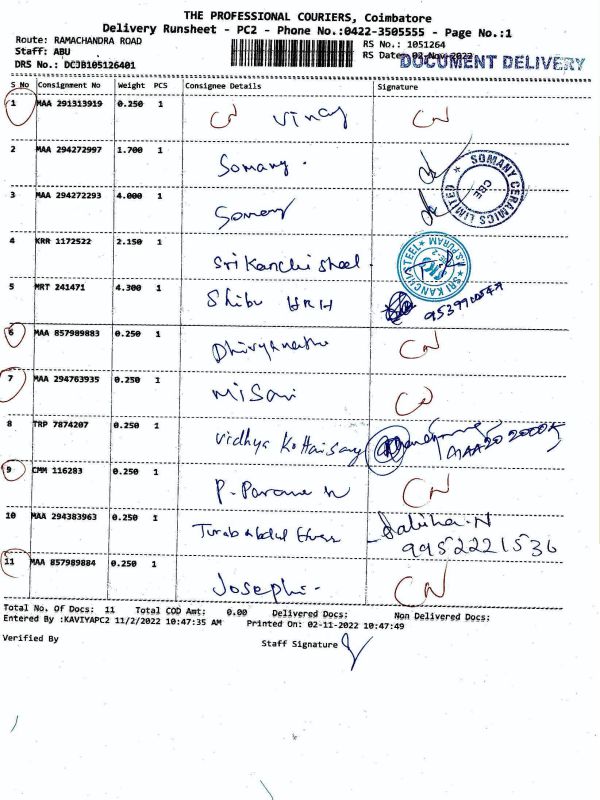 THE PROFESSIONAL COURIERS, Coimbatore
Delivery Runsheet - PC2 - Phone No.:0422-3505555 - Page No.:1
Route: RAMACHANDRA ROAD RS No.: 1051264
Staff: ABU RS Date: 02-Nov-2022
DOCUMENT DELIVERY
DRS No.: DCJB105126401
S No Consignment No Weight PCS Consignee Details Signature
1 MAA 291313919 0.250 1 CN Vinay CN
2 MAA 294272997 1.700 1 Somany.
3 MAA 294272293 4.000 1 Somany
SOMANY CERAMICS LIMITED
CBE
4 KRR 1172522 2.150 1 Sri Kanchi Steel.
SRI KANCHI STEEL R.S PURAM
5 MRT 241471 4.300 1 Shibu HRH
6 MAA 857989883 0.250 1 CN
7 MAA 294763935 0.250 1 Misari CN
8 TRP 7874207 0.250 1 Vidhya
9 CMM 116283 0.250 1 P. CN
10 MAA 294383963 0.250 1 Sabiha.N
9952221536
11 MAA 857989884 0.250 1 Joseph CN
Total No. Of Docs: 11 Total COD Amt: 0.00 Delivered Docs: Non Delivered Docs:
Entered By :KAVIYAPC2 11/2/2022 10:47:35 AM Printed On: 02-11-2022 10:47:49
Verified By Staff Signature